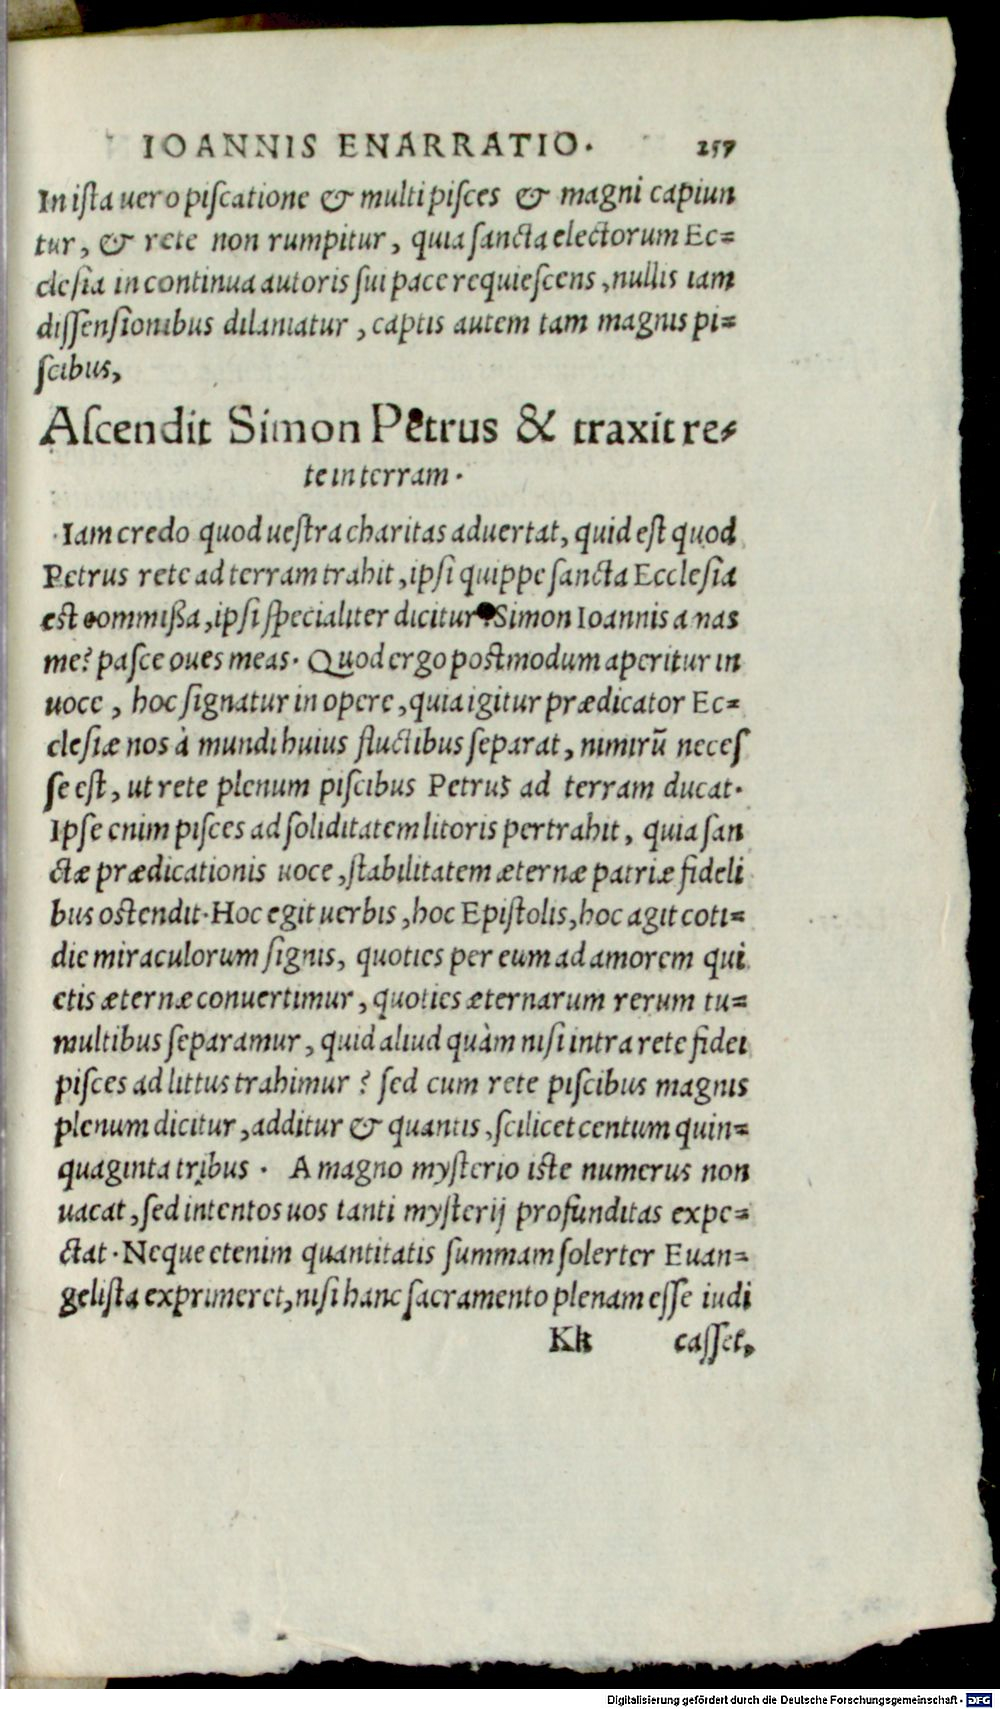 IOANNIS ENARRATIO. 257
In ista uero piscatione & multi pisces & magni capiun
tur, & rete non rumpitur, quia sancta electorum Ec=
clesia in continua autoris sui pace requiescens, nullis iam
dissensionibus dilaniatur, captis autem tam magnis pi=
scibus,
Ascendit Simon Petrus & traxit re-
te in terram.
Iam credo quod uestra charitas aduertat, quid est quod
Petrus rete ad terram trahit, ipsi quippe sancta Ecclesia
est commißa, ipsi specialiter dicitur: Simon Ioannis amas
me? pasce oues meas. Quod ergo postmodum aperitur in
uoce, hoc signatur in opere, quia igitur prædicator Ec=
clesiæ nos à mundi huius fluctibus separat, nimirū neces
se est, ut rete plenum piscibus Petrus ad terram ducat.
Ipse enim pisces ad soliditatem litoris pertrahit, quia san
ctæ prædicationis uoce, stabilitatem æternæ patriæ fideli
bus ostendit. Hoc egit uerbis, hoc Epistolis, hoc agit coti=
die miraculorum signis, quoties per eum ad amorem qui
etis æternæ conuertimur, quoties æternarum rerum tu=
multibus separamur, quid aliud quàm nisi intra rete fidei
pisces ad littus trahimur? sed cum rete piscibus magnis
plenum dicitur, additur & quantis, scilicet centum quin=
quaginta tribus. A magno mysterio iste numerus non
uacat, sed intentos uos tanti mysterij profunditas expe=
ctat. Neque etenim quantitatis summam solerter Euan=
gelista exprimeret, nisi hanc sacramento plenam esse iudi
Kk casset,
Digitalisierung gefördert durch die Deutsche Forschungsgemeinschaft - DFG